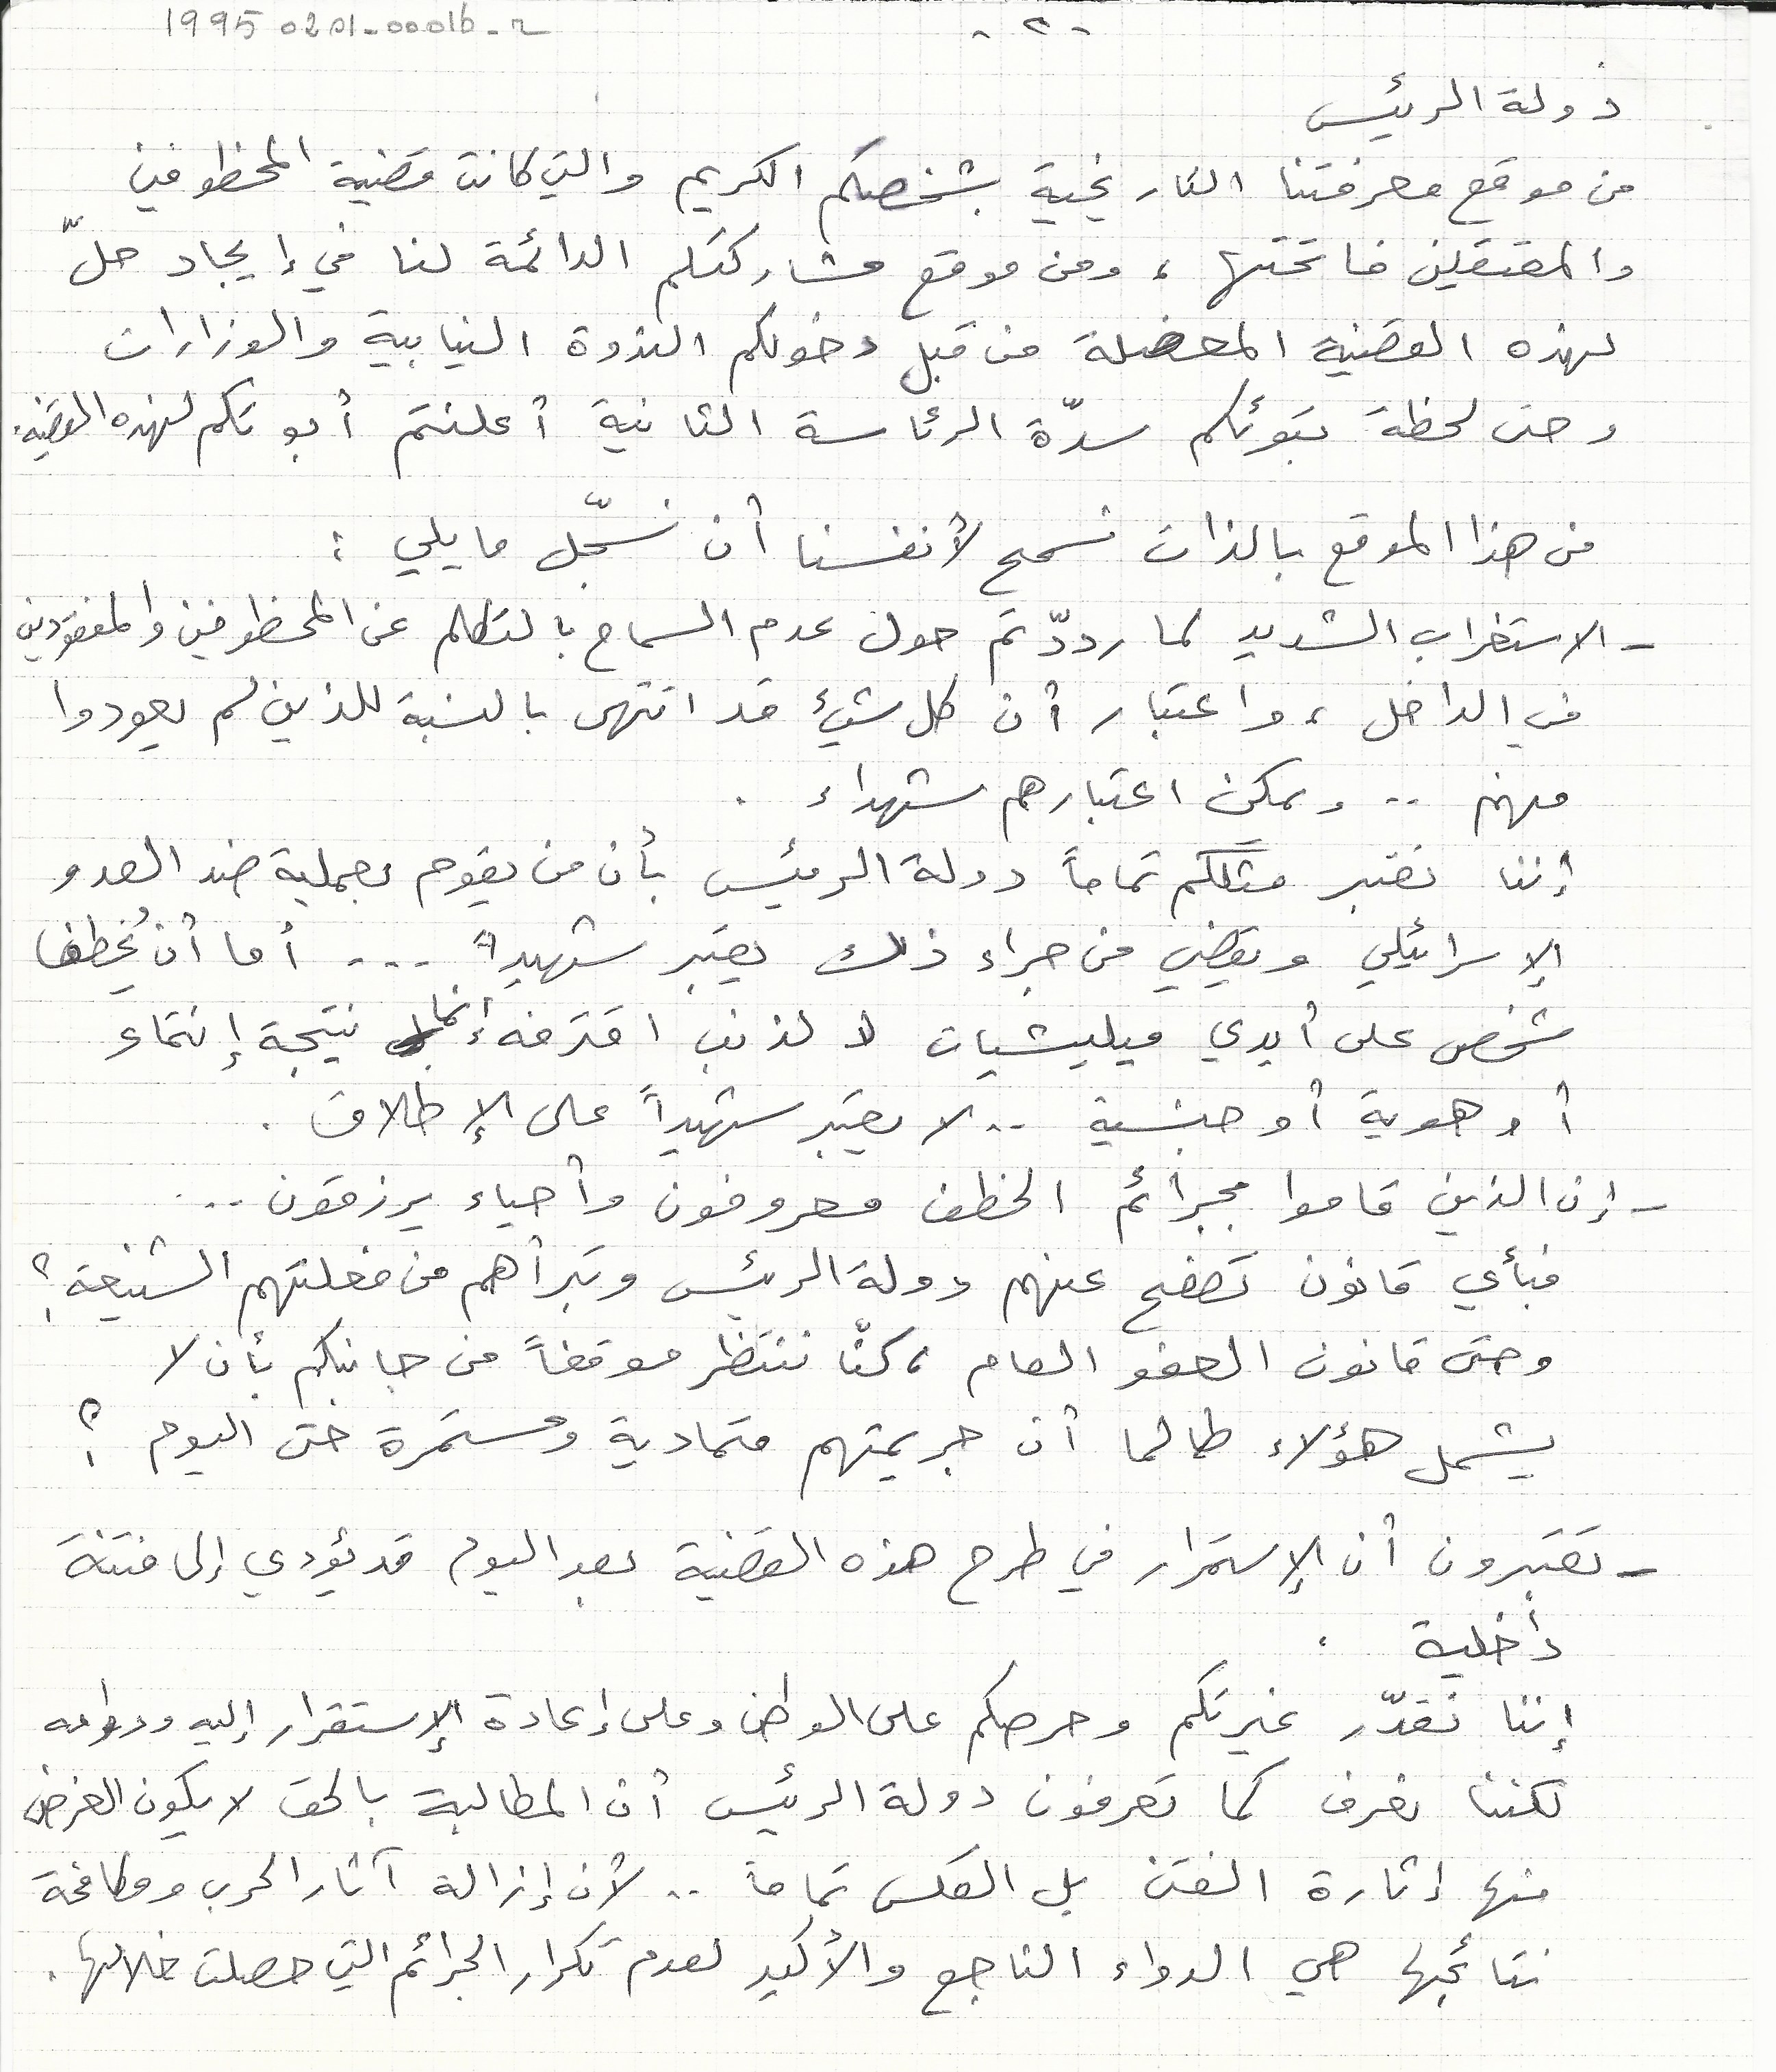 1995 0201-00016-2
- ٢ -
دولة الرئيس
من موقع معرفتنا التاريخية بشخصكم الكريم والتي كانت قضية المخطوفين
والمعتقلين فاتحتها ، ومن موقع مشاركتكم الدائمة لنا في إيجاد حلّ
لهذه القضية المعضلة من قبل دخولكم الندوة النيابية والوزارات
وحتى لحظة تبوئكم سدّة الرئاسة الثانية أعلنتم أبوتكم لهذه القضية.
من هذا الموقع بالذات نسمح لأنفسنا أن نسّجل ما يلي :
- الاستغراب الشديد لما رددّتم حول عدم السماح بالتكلم عن المخطوفين والمفقودين
في الداخل ، واعتبار أن كل شيئ قد انتهى بالنسبة للذين لم يعودوا
منهم .. ويمكن اعتبارهم شهداء .
إننا نعتبر مثلكم تماماً دولة الرئيس بأن من يقوم بعملية ضد العدو
الإسرائيلي ويقضي من جراء ذلك يعتبر شهيداً ... أما أن يُخطف
شخص على أيدي ميليشيات لا لذنب اقترفه إنما نتيجة إنتماء
أو هوية أو جنسية .. لا يعتبر شهيداً على الإطلاق .
- إن الذين قاموا بجرائم الخطف معروفون وأحياء يرزقون ...
فبأي قانون تصفح عنهم دولة الرئيس وتبرأهم من فعلتهم الشنيعة ؟
وحتى قانون العفو العام ، كنّا ننتظر موقفاً من جانبكم بأن لا
يشمل هؤلاء طالما أن جريمتهم متمادية ومستمرة حتى اليوم ؟
- تعتبرون أن الإستمرار في طرح هذه القضية بعد اليوم قد يؤدي إلى فتنة
داخلية .
إننا نقدّر غيرتكم وحرصكم على الوطن وعلى إعادة الإستقرار إليه ودوامه
لكننا نعرف كما تعرفون دولة الرئيس أن المطالبة بالحق لا يكون الغرض
منها إثارة الفتن بل العكس تماماً .. لأن إزالة آثار الحرب ومكافحة
نتائجها هي الدواء الناجع والأكيد لعدم تكرار الجرائم التي حصلت خلالها .